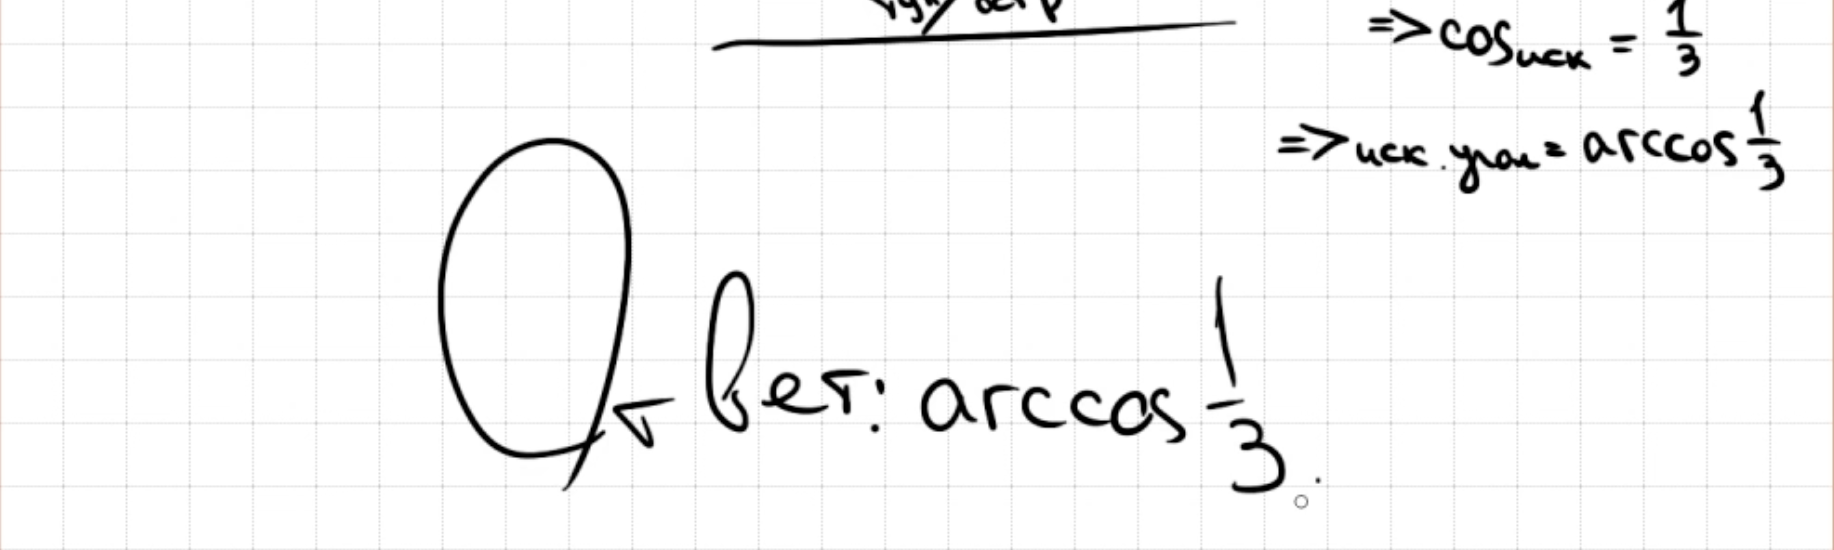 => cos иск = 1/3
=> иск. угол = arccos 1/3
Ответ: arccos 1/3.